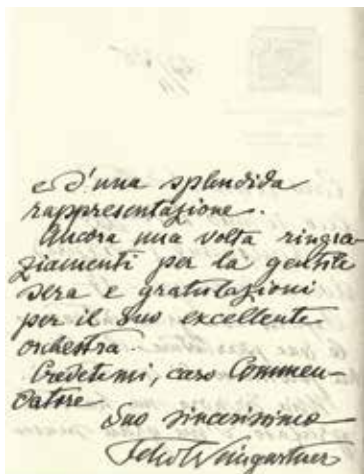 e d'una splendida
rappresentazione.
Ancora una volta ringra-
ziamenti per la gentile
sera e gratulazioni
per il suo excellente
orchestra.
Credetemi, caro Commen-
datore
Suo sincerissimo
Felix Weingartner